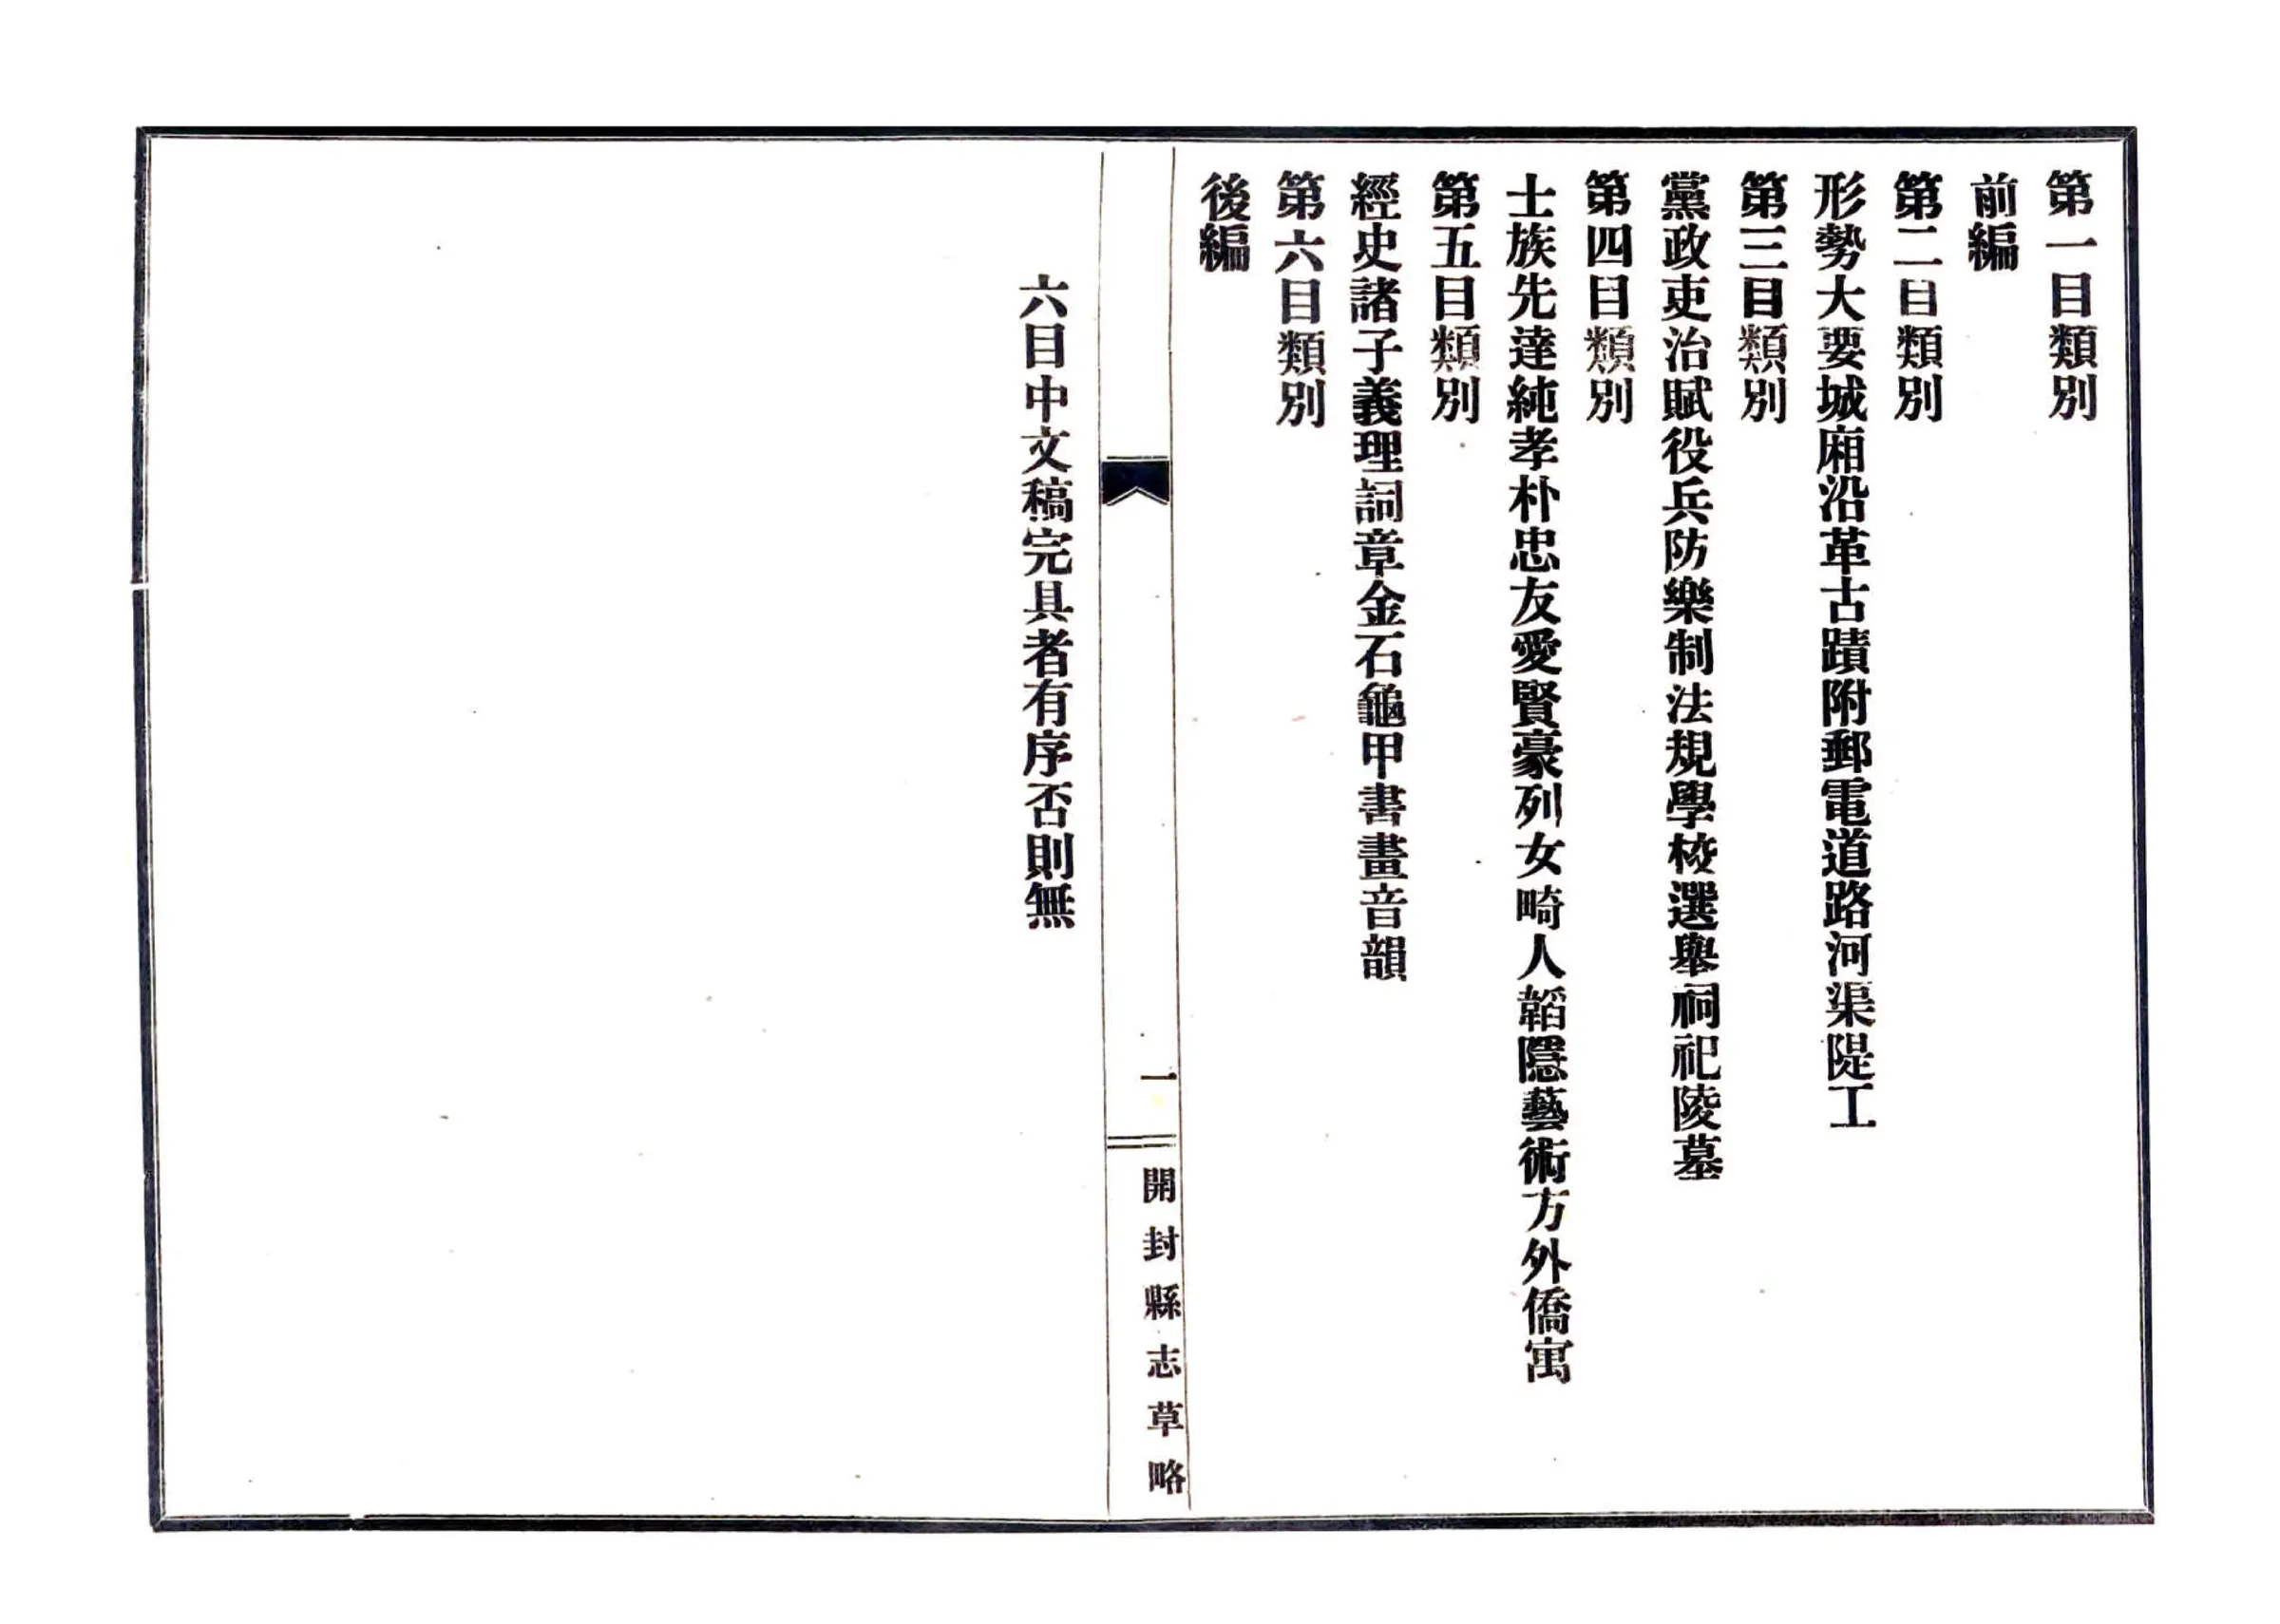 第一目類別
前編
第二目類別
形勢大要城廂沿革古蹟附郵電道路河渠隄工
第三目類別
黨政吏治賦役兵防樂制法規學校選舉祠祀陵墓
第四目類別
士族先達純孝朴忠友愛賢豪列女畸人韜隱藝術方外僑寓
第五目類別
經史諸子義理詞章金石龜甲書畫音韻
第六目類別
後編
一
開封縣志草略
六目中文稿完具者有序否則無